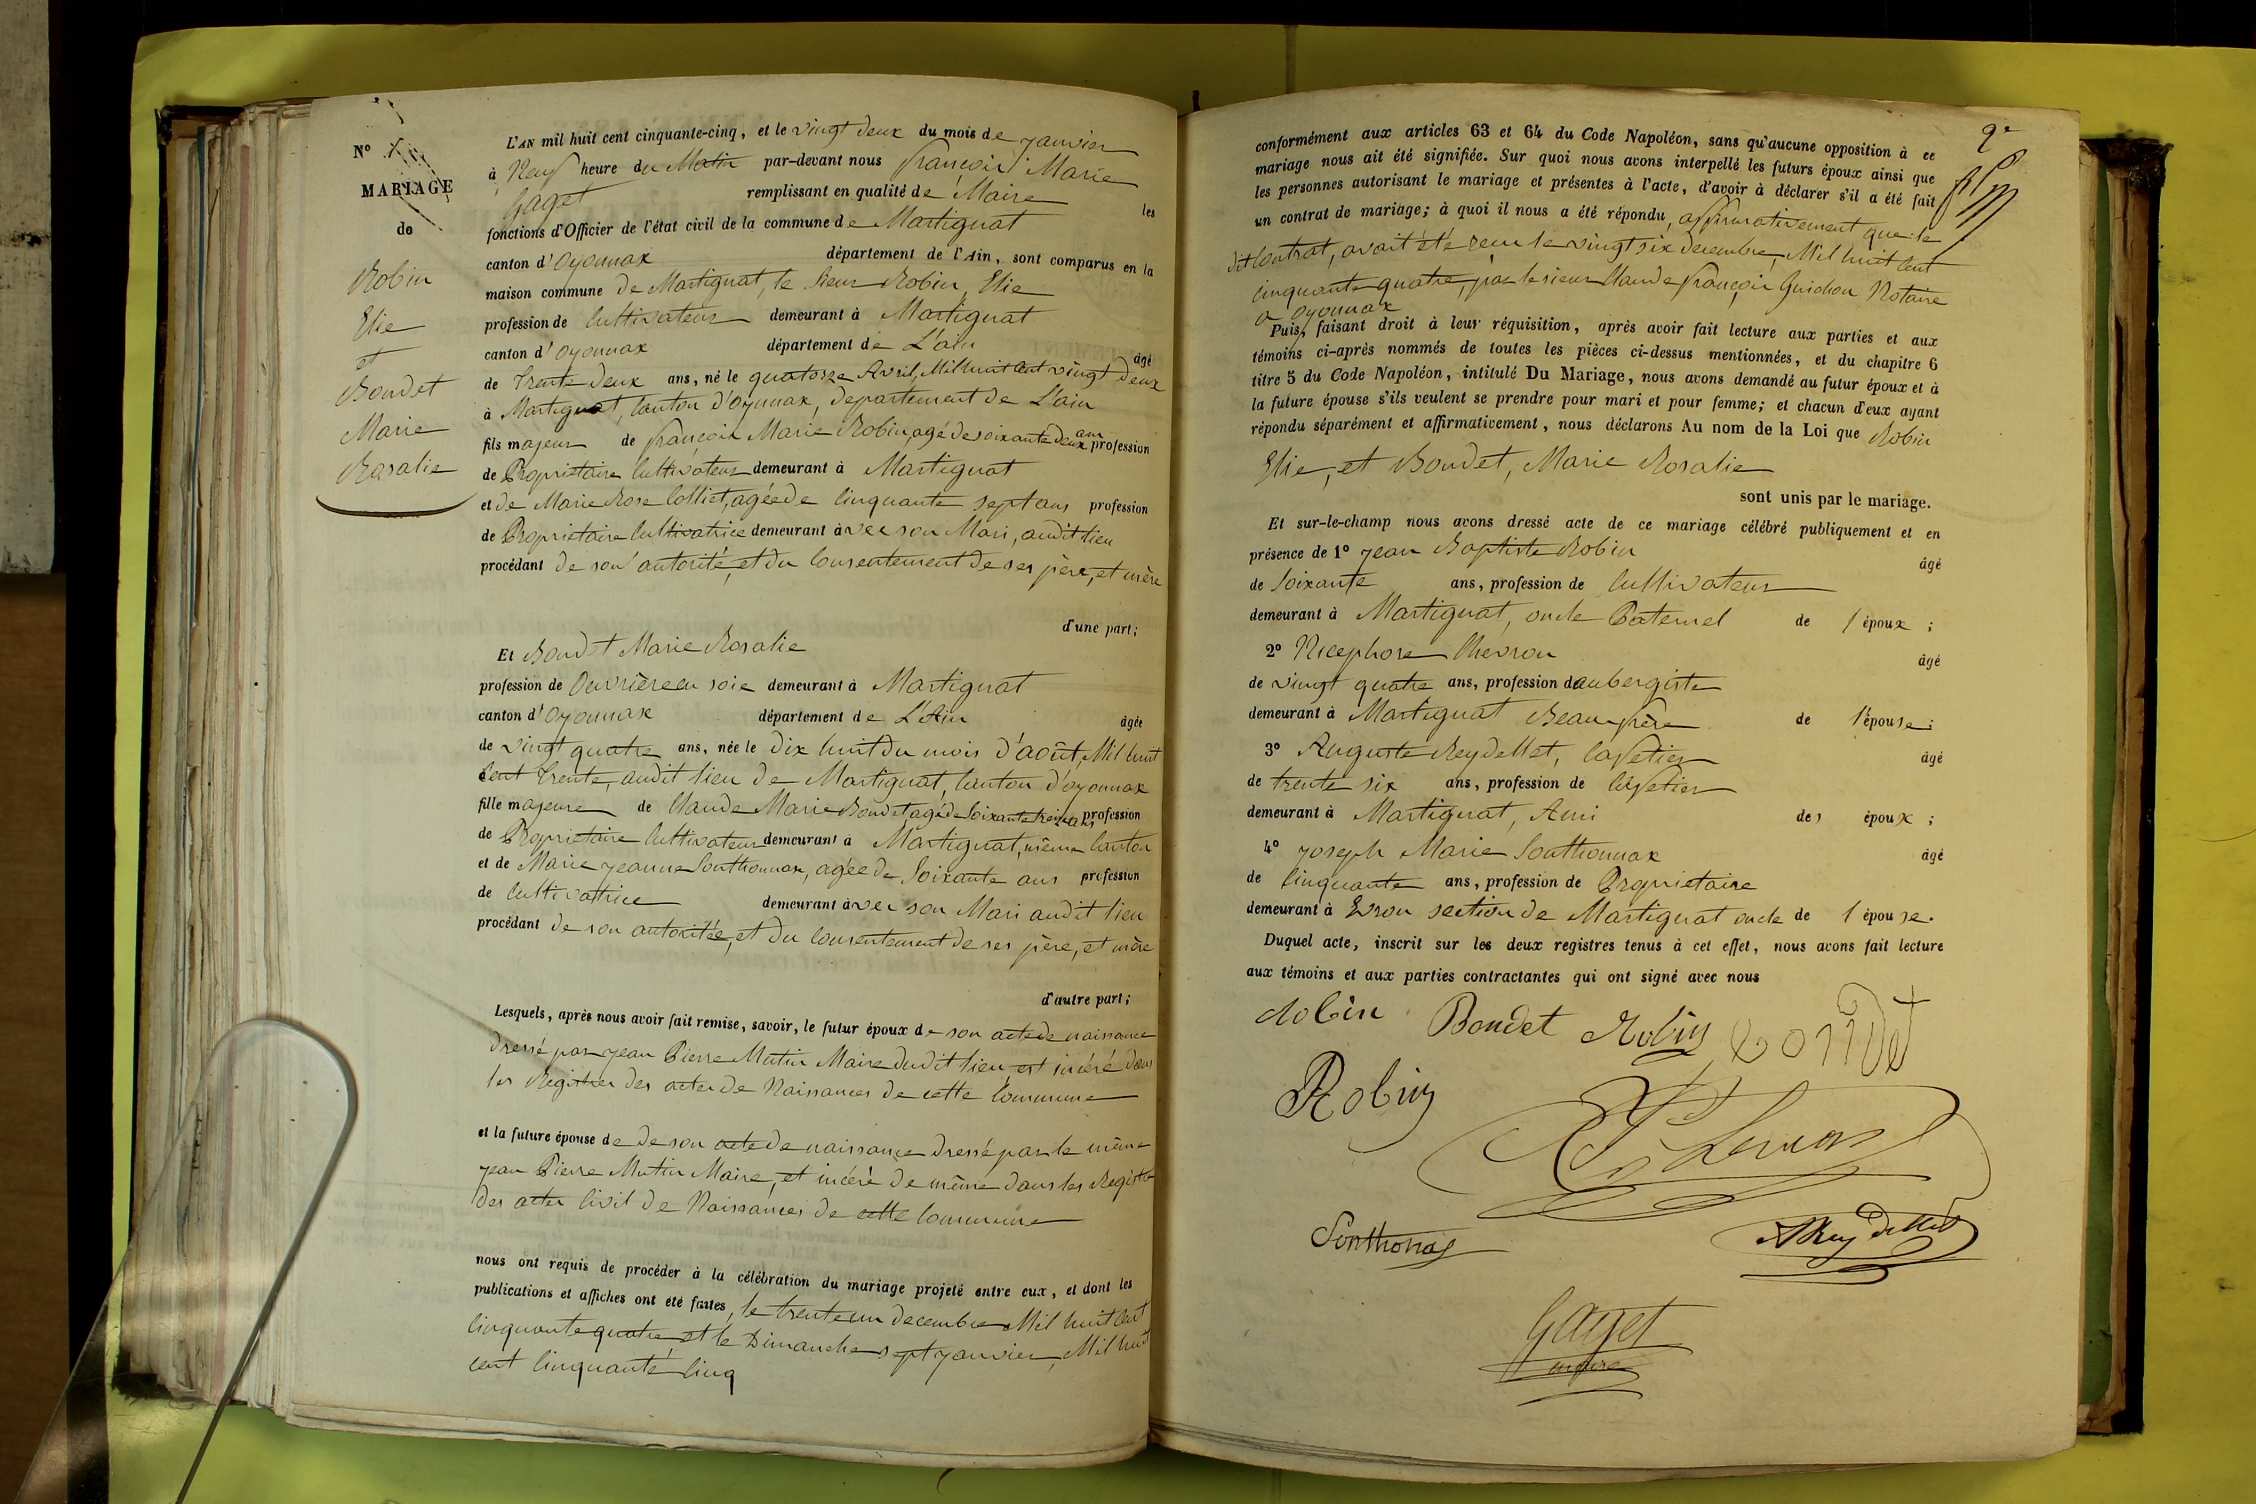 N° 1
MARIAGE
de
Robin
Elie
et
Bondet
Marie
Rosalie
L'AN mil huit cent cinquante-cinq, et le vingt deux du mois de janvier
à Neuf heure du Matin par-devant nous françois Marie
Gaget remplissant en qualité de Maire les
fonctions d'Officier de l'état civil de la commune de Martignat
canton d'Oyonnax département de l'Ain, sont comparus en la
maison commune de Martignat, le sieur Robin, Elie
profession de Cultivateur demeurant à Martignat
canton d'Oyonnax département de L'ain âgé
de trente deux ans, né le quatorze Avril, Mil huit cent vingt deux
à Martignat, Canton d'Oyonnax, departement de L'ain
fils majeur de françois Marie Robin, agé de soixante deux ans profession
de Propriétaire Cultivateur demeurant à Martignat
et de Marie Rose Colliet, agée de Cinquante sept ans profession
de Propriétaire Cultivatrice demeurant avec son Mari, audit lieu
procédant de son autorité, et du Consentement de ses père, et mère
d'une part;
Et Bondet Marie Rosalie
profession de Ouvrière en soie demeurant à Martignat
canton d'Oyonnax département de L'Ain âgée
de vingt quatre ans, née le Dix huit du mois d'août, Mil huit
Cent trente, audit lieu de Martignat, Canton d'oyonnax
fille majeure de Claude Marie Bondet, agé de Soixante treize ans profession
de Propriétaire Cultivateur demeurant à Martignat, même Canton
et de Marie Jeanne Sonthonnax, agée de Soixante ans profession
de Cultivattrice demeurant avec son Mari audit lieu
procédant de son autoritée, et du Consentement de ses père, et mère
d'autre part;
Lesquels, après nous avoir fait remise, savoir, le futur époux de son acte de naissance
dressé par jean Pierre Mutin Maire dudit lieu, est inséré dans
les Registres des actes de Naissances de cette Commune
et la future épouse de de son acte de naissance dressé par le même
jean Pierre Mutin Maire, et inséré de même dans les Registre
des actes Civil de Naissances de cette Commune
nous ont requis de procéder à la célébration du mariage projeté entre eux, et dont les
publications et affiches ont été faites, le trente un decembre Mil huit Cent
Cinquante quatre et le Dimanche sept janvier, Mil huit
cent Cinquante Cinq
2e
conformément aux articles 63 et 64 du Code Napoléon, sans qu'aucune opposition à ce
mariage nous ait été signifiée. Sur quoi nous avons interpellé les futurs époux ainsi que
les personnes autorisant le mariage et présentes à l'acte, d'avoir à déclarer s'il a été fait
un contrat de mariage; à quoi il nous a été répondu, affirmativement que le
dit Contrat, avait été reçu le vingt six decembre, Mil huit Cent
Cinquante quatre, par le sieur Claude françois Guichon Notaire
a Oyonnax
Puis, faisant droit à leur réquisition, après avoir fait lecture aux parties et aux
témoins ci-après nommés de toutes les pièces ci-dessus mentionnées, et du chapitre 6
titre 5 du Code Napoléon, intitulé Du Mariage, nous avons demandé au futur époux et à
la future épouse s'ils veulent se prendre pour mari et pour femme; et chacun d'eux ayant
répondu séparément et affirmativement, nous déclarons Au nom de la Loi que Robin
Elie, et Bondet, Marie Rosalie
sont unis par le mariage.
Et sur-le-champ nous avons dressé acte de ce mariage célébré publiquement et en
présence de 1° jean Baptiste Robin âgé
de Soixante ans, profession de Cultivateur
demeurant à Martignat, oncle Paternel de l'époux;
2° Nicephore Chevron âgé
de vingt quatre ans, profession d'aubergiste
demeurant à Martignat Beaufrère de l'épouse;
3° Auguste Reydellet, Cafetier âgé
de trente six ans, profession de Cafetier
demeurant à Martignat, Ami des époux;
4° joseph Marie Sonthonnax âgé
de Cinquante ans, profession de Propriétaire
demeurant à Evron section de Martignat oncle de l'épouse.
Duquel acte, inscrit sur les deux registres tenus à cet effet, nous avons fait lecture
aux témoins et aux parties contractantes qui ont signé avec nous
Robin Bondet Robin Bondet
Robin
Sonthonax
A Reydellet
Gaget
maire